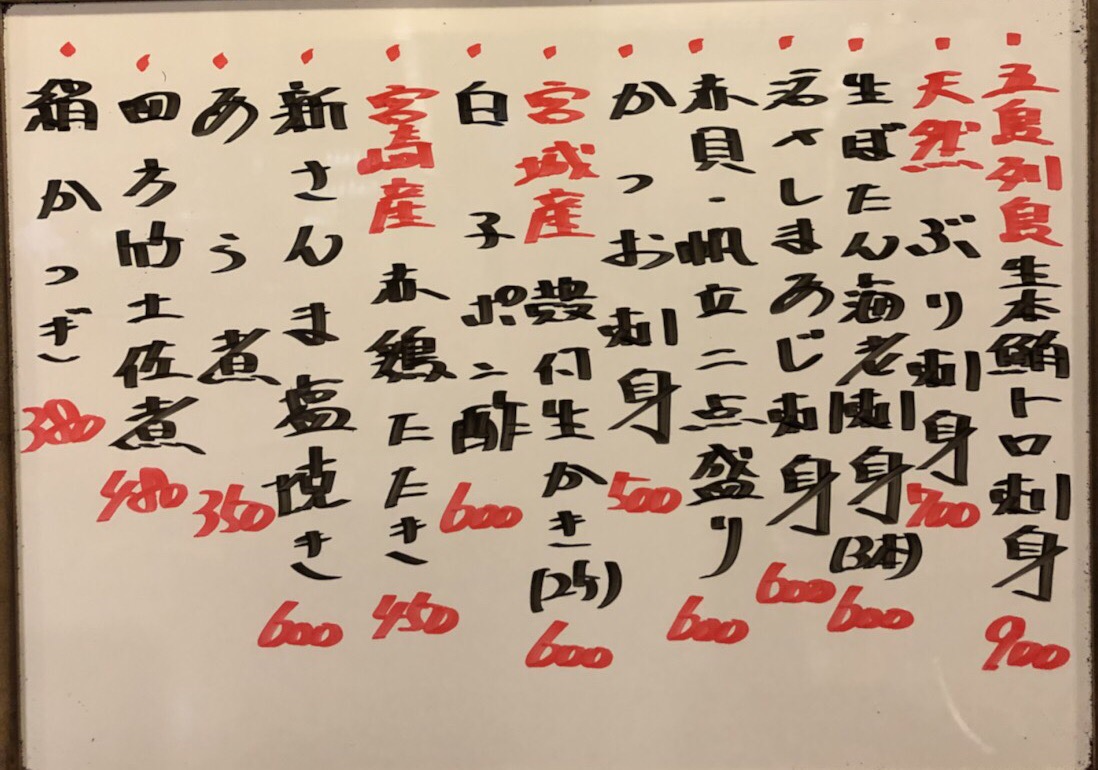 五島列島 生本鮪トロ刺身 900
天然 ぶり刺身 700
生ぼたん海老刺身(3本) 600
しまあじ刺身 600
赤貝・帆立二点盛り 600
かつお刺身 500
宮城産 殻付生かき(2ケ) 600
白子ポン酢 600
宮崎産 赤鶏たたき 450
新さんま塩焼き 600
あら煮 350
四方竹土佐煮 480
絹かつぎ 380